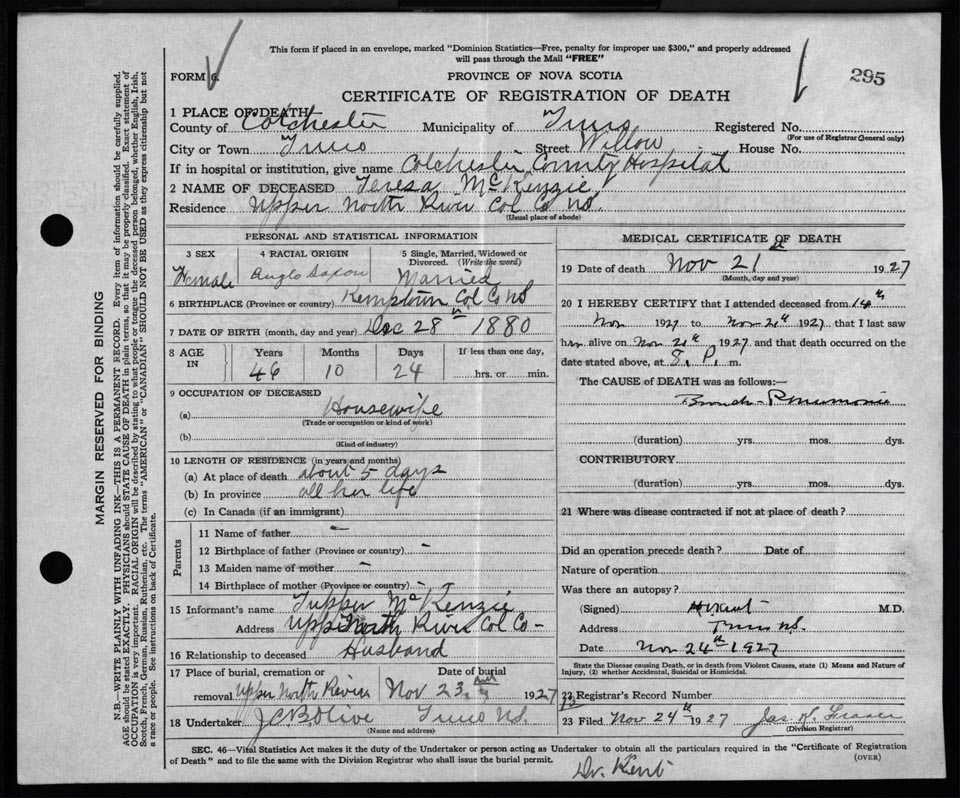 This form if placed in an envelope, marked "Dominion Statistics—Free, penalty for improper use $300," and properly addressed
will pass through the Mail "FREE"
FORM 6.
PROVINCE OF NOVA SCOTIA
295
CERTIFICATE OF REGISTRATION OF DEATH
1 PLACE OF DEATH
County of Colchester Municipality of Truro Registered No.
(For use of Registrar General only)
City or Town Truro Street Willow House No.
If in hospital or institution, give name Colchester County Hospital
2 NAME OF DECEASED Teresa McKenzie
Residence Upper North River Col Co NS.
(Usual place of abode)
PERSONAL AND STATISTICAL INFORMATION
3 SEX 4 RACIAL ORIGIN 5 Single, Married, Widowed or
Divorced. (Write the word)
Female Anglo Saxon Married
6 BIRTHPLACE (Province or country) Kemptown Col Co NS
7 DATE OF BIRTH (month, day and year) Dec 28th 1880
8 AGE IN Years Months Days If less than one day,
46 10 24 hrs. or min.
9 OCCUPATION OF DECEASED
(a) Housewife
(Trade or occupation or kind of work)
(b)
(Kind of industry)
10 LENGTH OF RESIDENCE (in years and months)
(a) At place of death about 5 days
(b) In province all her life
(c) In Canada (if an immigrant)
Parents
11 Name of father —
12 Birthplace of father (Province or country) —
13 Maiden name of mother —
14 Birthplace of mother (Province or country) —
15 Informant's name Tupper McKenzie
Address Upper North River Col Co —
16 Relationship to deceased Husband
17 Place of burial, cremation or Date of burial
removal Upper North River Nov 23 1927
18 Undertaker JCB Olive Truro NS.
(Name and address)
MEDICAL CERTIFICATE OF DEATH
19 Date of death Nov 21 1927
(Month, day and year)
20 I HEREBY CERTIFY that I attended deceased from 14th
Nov 1927 to Nov 21st 1927 that I last saw
her alive on Nov 21st 1927 and that death occurred on the
date stated above, at 8. P. m.
The CAUSE OF DEATH was as follows:—
Broncho-Pneumonia
(duration) yrs. mos. dys.
CONTRIBUTORY
(duration) yrs. mos. dys.
21 Where was disease contracted if not at place of death?
Did an operation precede death? Date of
Nature of operation
Was there an autopsy?
(Signed) Kent M.D.
Address Truro NS.
Date Nov 24th 1927
State the Disease causing Death, or in death from Violent Causes, state (1) Means and Nature of
Injury, (2) whether Accidental, Suicidal or Homicidal.
Registrar's Record Number
23 Filed Nov 24th 1927 Jas Fraser
(Division Registrar)
SEC. 46—Vital Statistics Act makes it the duty of the Undertaker or person acting as Undertaker to obtain all the particulars required in the "Certificate of Registration
of Death" and to file the same with the Division Registrar who shall issue the burial permit.
(OVER)
Dr. Kent
MARGIN RESERVED FOR BINDING
N.B.—WRITE PLAINLY WITH UNFADING INK—THIS IS A PERMANENT RECORD. Every item of information should be carefully supplied.
AGE should be stated EXACTLY. PHYSICIANS should STATE CAUSE OF DEATH in plain terms, so that it may be properly classified. Exact statement of
OCCUPATION is very important. RACIAL ORIGIN will be described by stating to what people or tongue the deceased person belonged, whether English, Irish,
Scotch, French, German, Russian, Ruthenian, etc. The terms "AMERICAN" or "CANADIAN" SHOULD NOT BE USED as they express citizenship but not
a race or people. See instructions on back of Certificate.